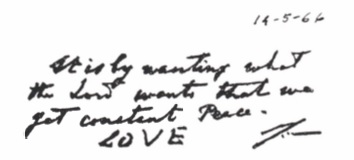 14-5-66
It is by wanting what
the Lord wants that we
get constant Peace.
LOVE